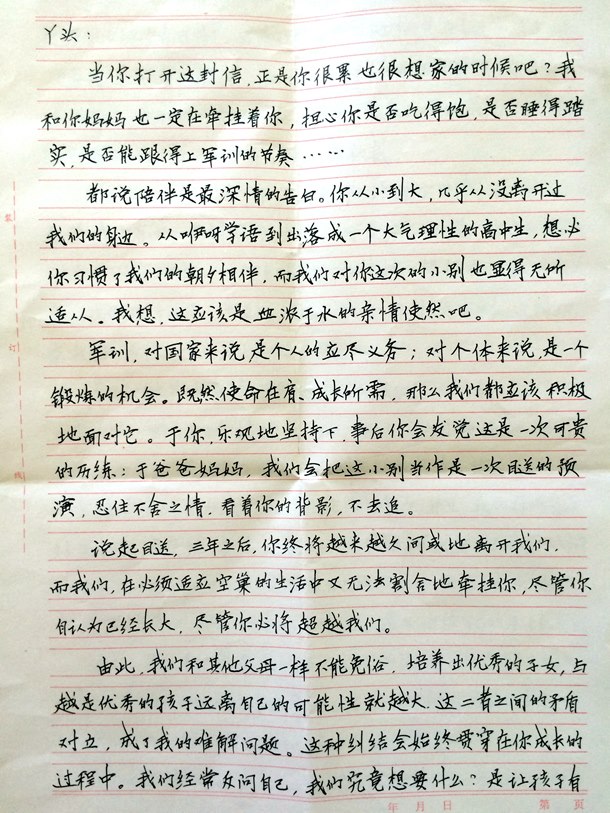 丫头：
当你打开这封信，正是你很累也很想家的时候吧？我
和你妈妈也一定在牵挂着你，担心你是否吃得饱，是否睡得踏
实，是否能跟得上军训的节奏……
都说陪伴是最深情的告白。你从小到大，几乎从没离开过
我们的身边。从咿呀学语到出落成一个大气理性的高中生，想必
你习惯了我们的朝夕相伴，而我们对你这次的小别也显得无所
适从。我想，这应该是血浓于水的亲情使然吧。
军训，对国家来说，是个人的应尽义务；对个体来说，是一个
锻炼的机会。既然使命在肩、成长所需，那么我们都应该积极
地面对它。于你，乐观地坚持下，事后你会发觉这是一次可贵
的历练；于爸爸妈妈，我们会把这小别当作是一次目送的预
演，忍住不舍之情，看着你的背影，不去追。
说起目送，三年之后，你终将越来越久
地离开我们，
而我们，在必须适应空巢的生活中又无法割舍地牵挂你，尽管你
自认为已经长大，尽管你必将超越我们。
由此，我们和其他父母一样不能免俗，培养出优秀的子女，与
越是优秀的孩子远离自己的可能性就越大，这二者之间的矛盾
对立，成了我的难解问题。这种纠结会始终贯穿在你成长的
过程中。我们经常反问自己，我们究竟想要什么？是让孩子有
装
订
线
年 月 日 第 页